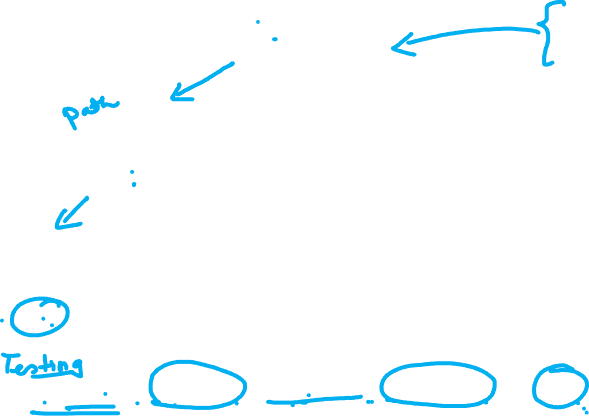 path
Testing